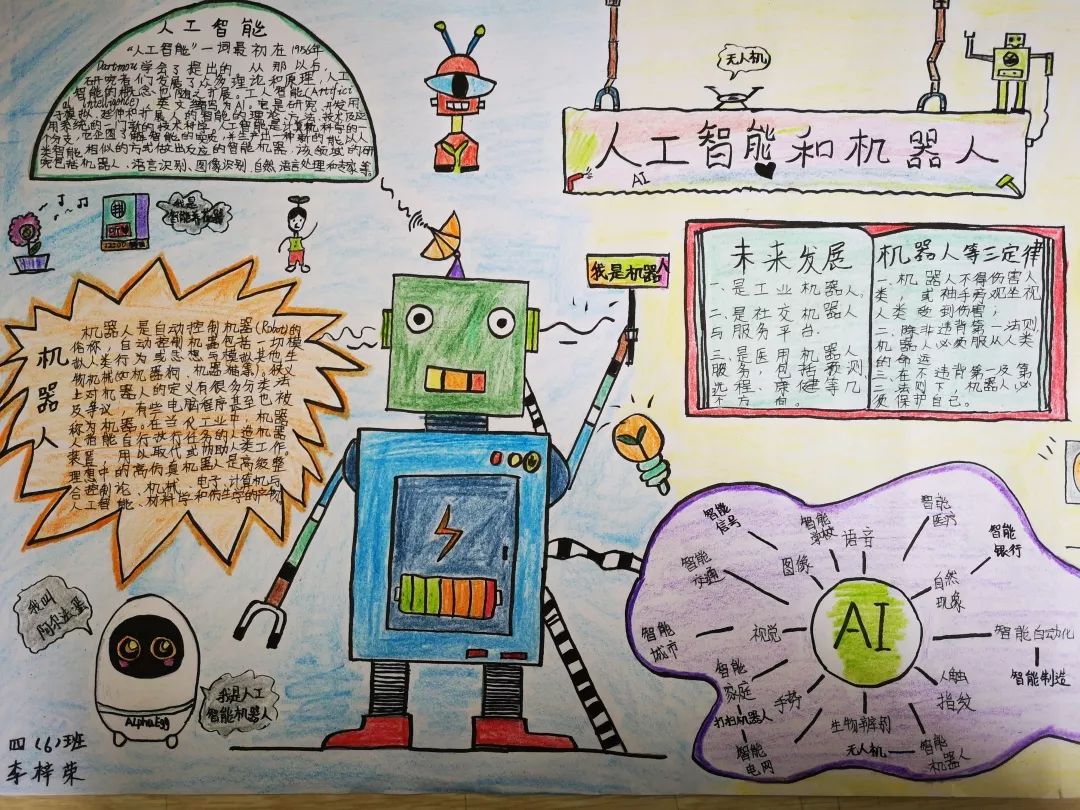 人工智能
“人工智能”一词最初在1956年
Dartmou学会了提出的，从那以后，
研究者们发展了众多理论和原理，人工
智能的概念也随之扩展，工人智能(Artifict
al Intelligence)英文缩写为AI，它是研究、开发用
于模拟、延伸和扩展人的智能的理论、方法、技术及应
用系统的一门新的技术科学，人工智能是计算机科学的一
个分支，它企图了解智能的实质，并生产出一种新的可能以人
类智能相似的方式做出反应的智能机器，该领域的研
究包括机器人、语言识别、图像识别、自然语言处理和专家等。
无人机
人工智能和机器人
AI
我是
智能
我是机器人
机器人
机器人是自动控制机器(Robot)的
俗称，自动控制机器包括一切模
拟人类行为或思想与模拟其他生
物机械(如机器狗，机器猫等)。狭义
上对机器人的定义有很多分类法
及争议，有些电脑程序甚至也被
称为机器。在当代工业中，机器
人指能自行执行任务的人造机器
装置，用以取代或协助人类工作。
理想中的高仿真机器人是高级整
合控制论、机械、电子、计算机与
人工智能、材料学和仿生学的产物
未来发展
一、是工业机器人。
二、是社交机器人
与服务平台.
三、是医用机器人
服务，包括预测
远程、康健等几
个方面。
机器人等三定律
一、机器人不得伤害人
类，或袖手旁观坐视
人类受到伤害；
二、除非违背第一法则，
机器人必须服从人类
的命运
三、在不违背第一及第
二法则下，机器人必
须保护自己。
我叫
阿尔法蛋
AlphaEgg
我是人工
智能机器人
四（6）班
李梓荣
AI
智能
信号
智能
学校
语音
智能
医疗
智能
银行
智能
交通
图像
自然
现象
智能
城市
视觉
智能自动化
智能制造
智能
家庭
扫扫机器人
智能
电网
手势
生物辨别
人触
指纹
无人机
智能
机器人